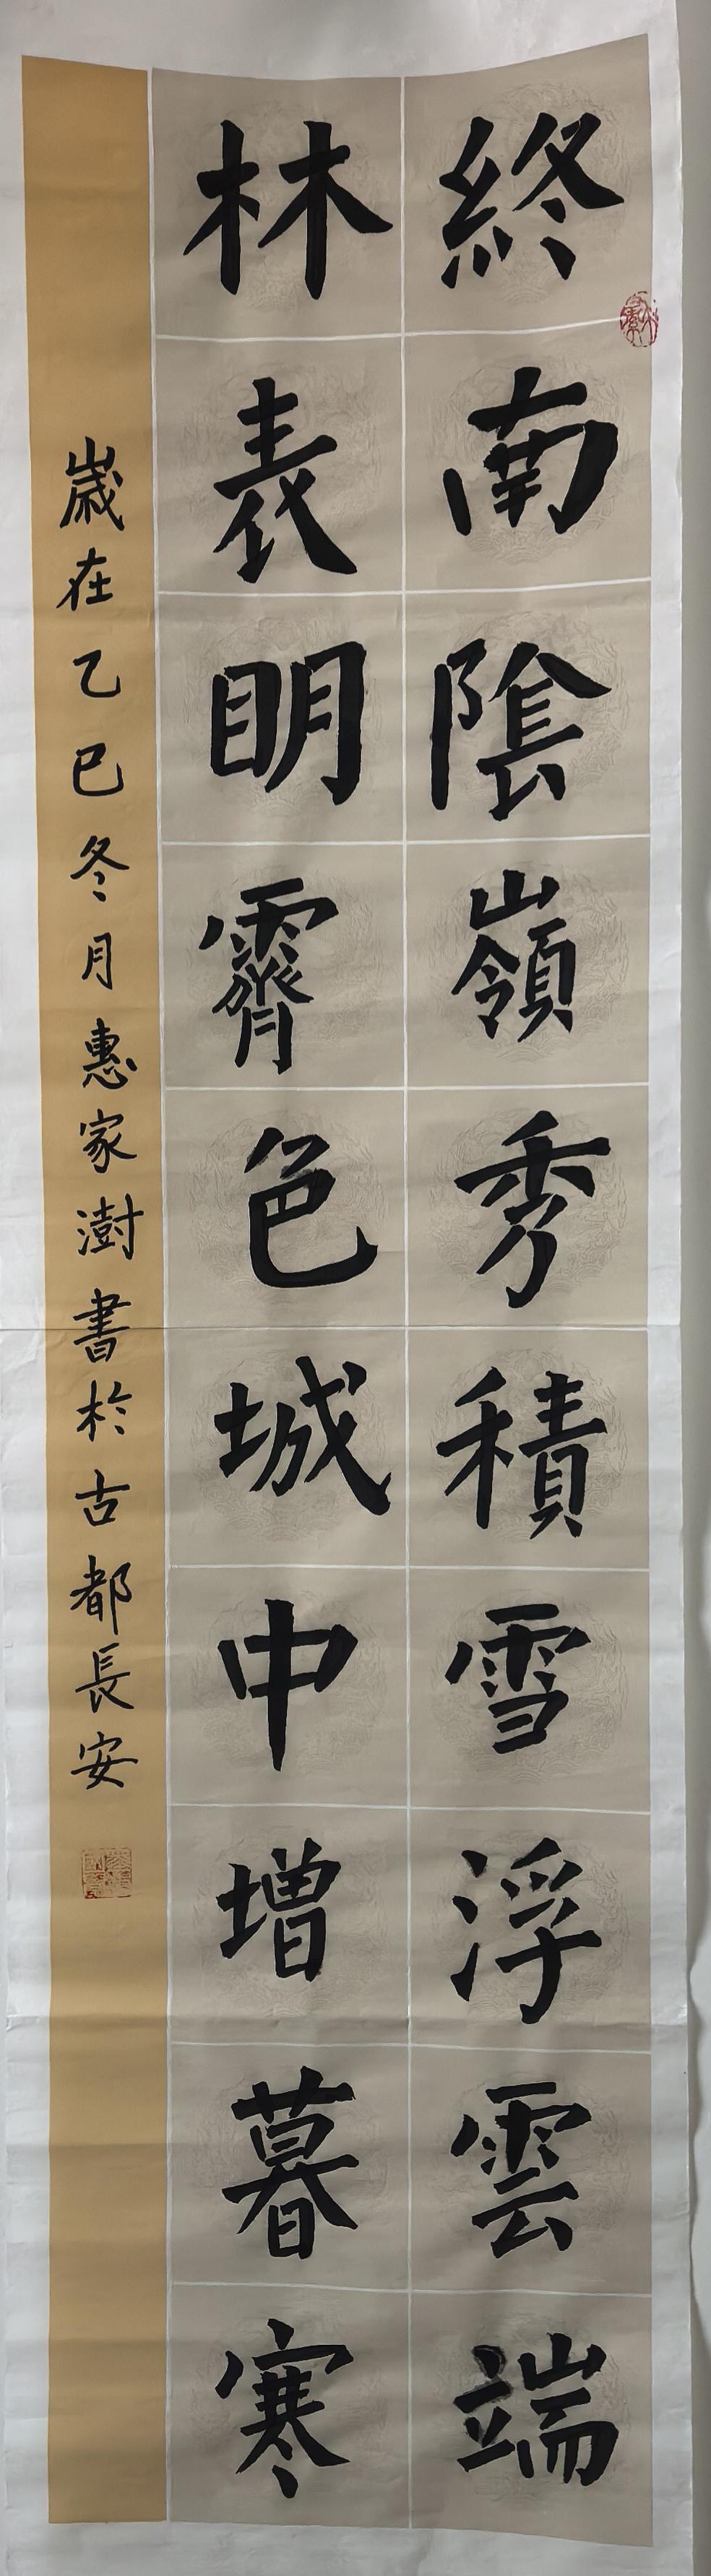 終南陰嶺秀積雪浮雲端
林表明霽色城中增暮寒
歲在乙巳冬月惠家澍書於古都長安